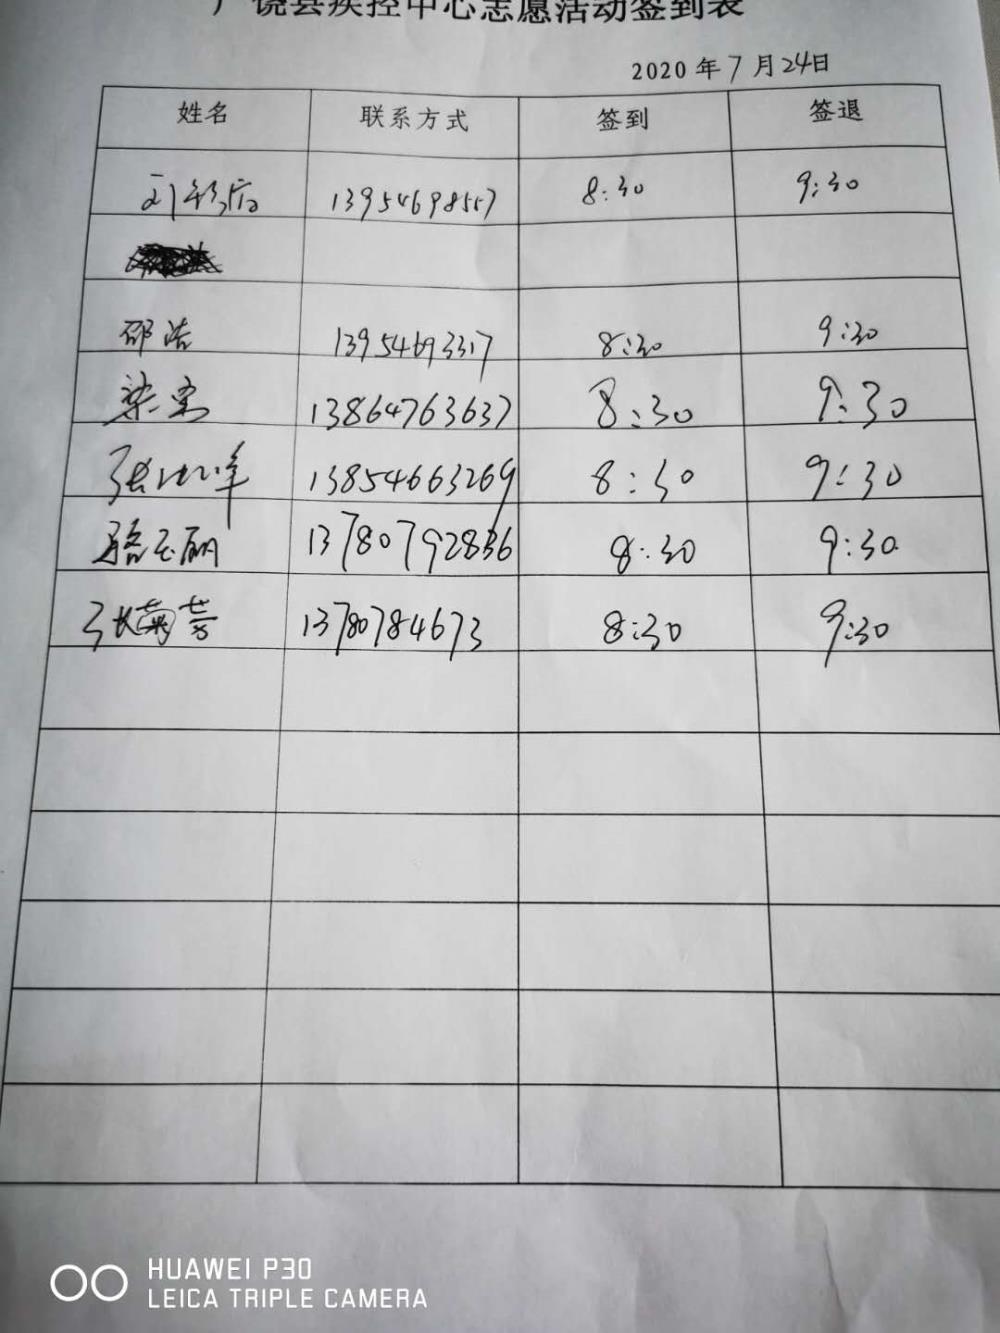 广饶县疾控中心志愿活动签到表
2020年7月24日
姓名 联系方式 签到 签退
8:30 9:30
邵浩 13954693317 8:30 9:30
13864763637 8:30 9:30
13854663269 8:30 9:30
骆玉丽 13780792836 8:30 9:30
张菊芳 13780784673 8:30 9:30
HUAWEI P30
LEICA TRIPLE CAMERA